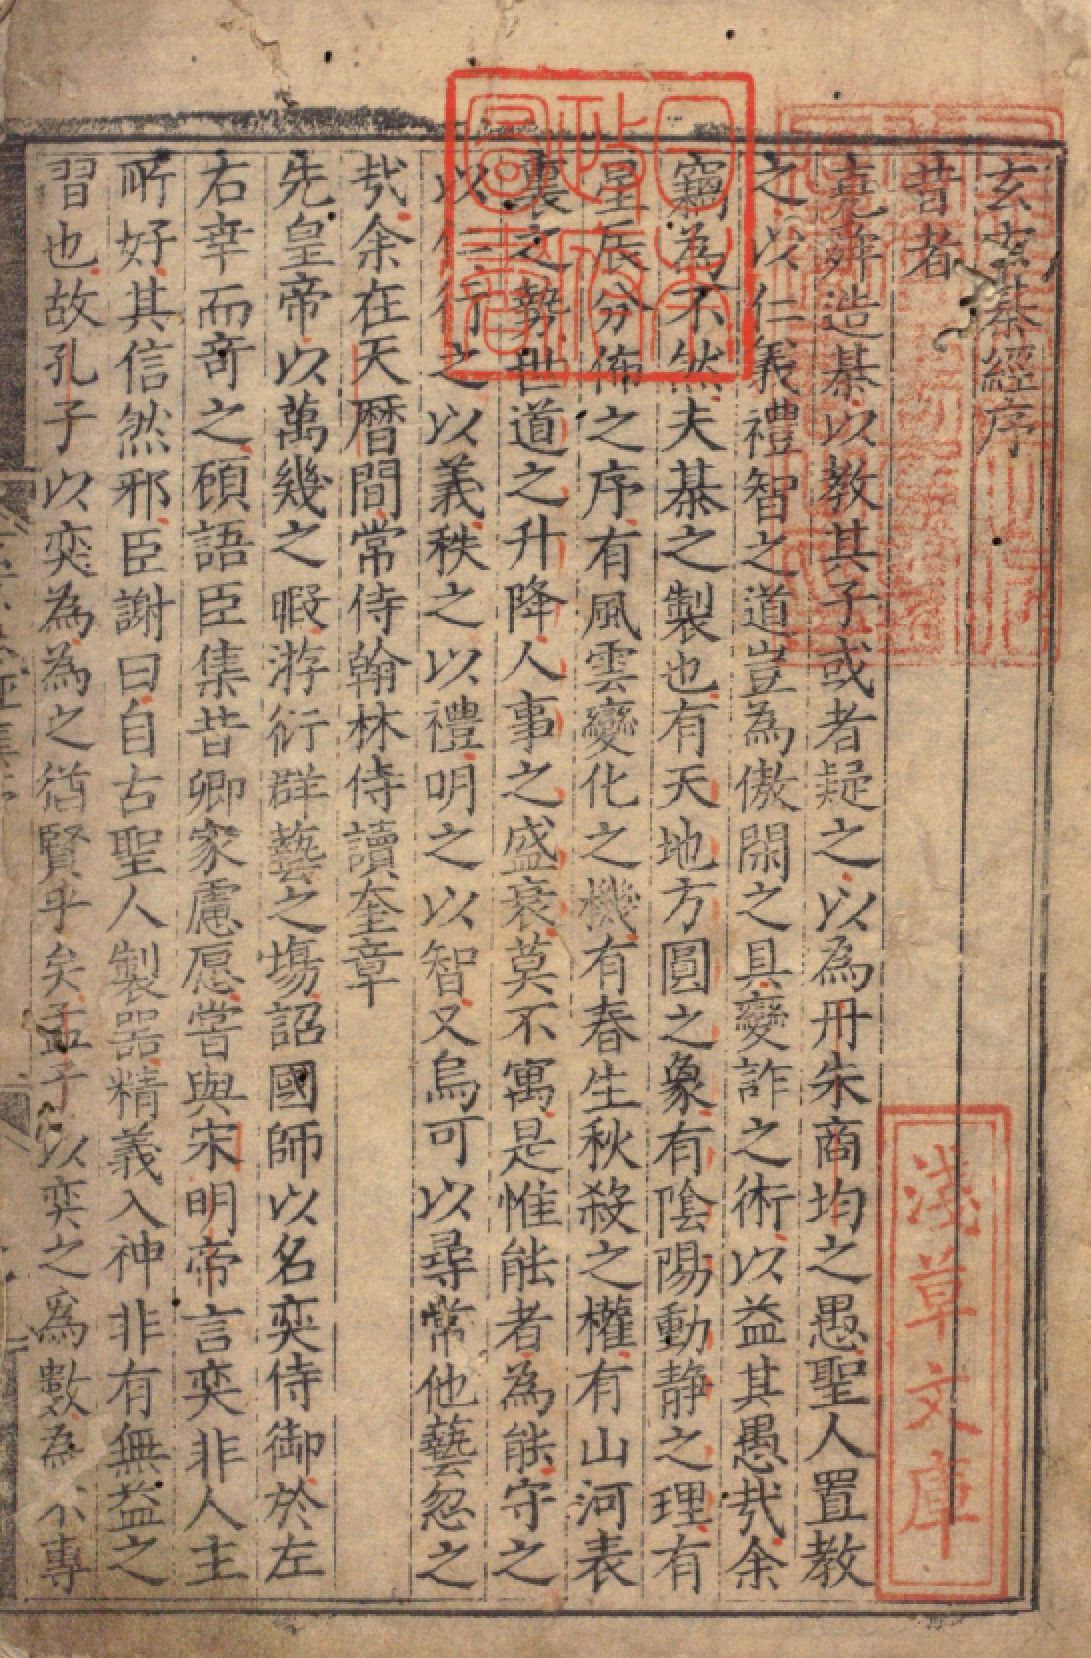 玄玄棊經序
昔者
堯舜造棊以教其子或者疑之以為丹朱商均之愚聖人置教
之以仁義禮智之道豈為傲閑之具變詐之術以益其愚㢤余
竊為不然夫棊之製也有天地方圓之象有陰陽動静之理有
星辰分佈之序有風雲變化之機有春生秋殺之權有山河表
裏之勢世道之升降人事之盛衰莫不寓是惟能者為能守之
以仁行之以義秩之以禮明之以智又烏可以尋常他藝忽之
㢤余在天曆間常侍翰林侍讀奎章
先皇帝以萬幾之暇游衍群藝之塲詔國師以名奕侍御於左
右幸而奇之顧語臣集昔卿家慮愿嘗與宋明帝言奕非人主
所好其信然邪臣謝曰自古聖人製器精義入神非有無益之
習也故孔子以奕為為之猶賢乎矣孟子以奕之爲數為小專
日本
政府
圖書
淺草文庫